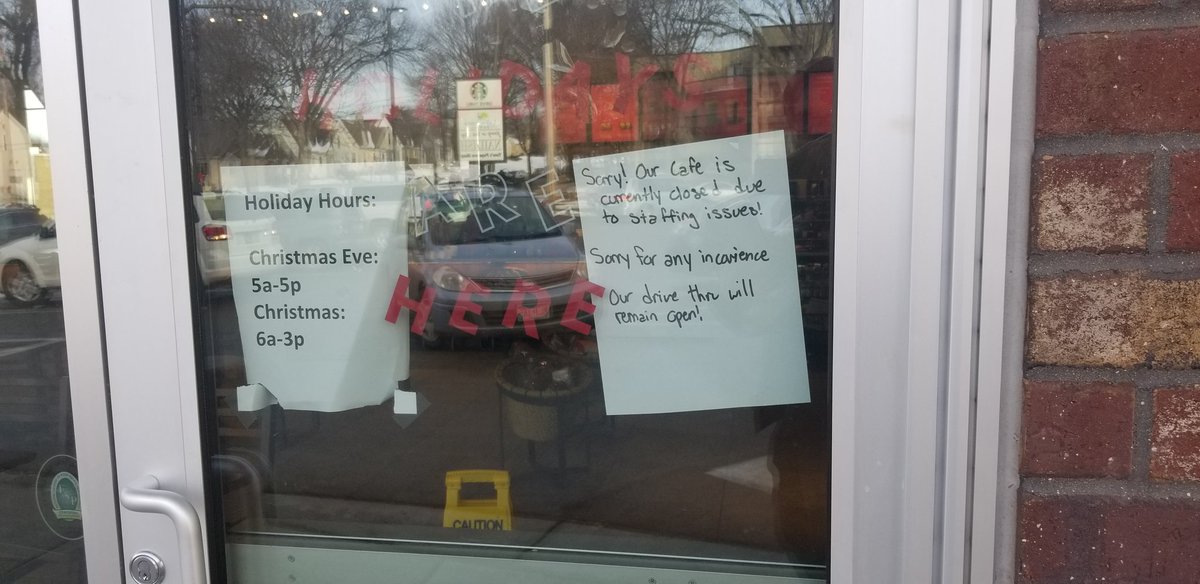 HOLIDAYS
ARE
HERE
Holiday Hours:
Christmas Eve:
5a-5p
Christmas:
6a-3p
Sorry! Our Cafe is
currently closed due
to staffing issues!
Sorry for any incovience
Our drive thru will
remain open!
CAUTION